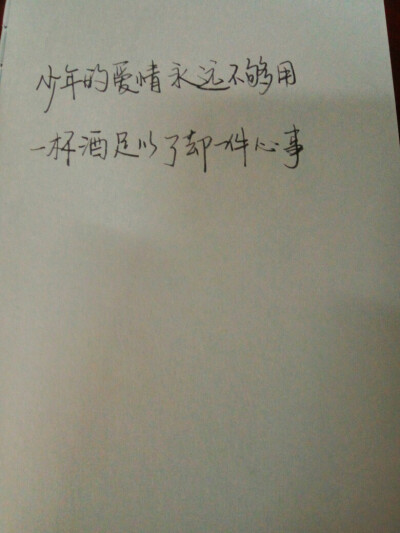 少年的爱情永远不够用
一杯酒足以了却一件心事